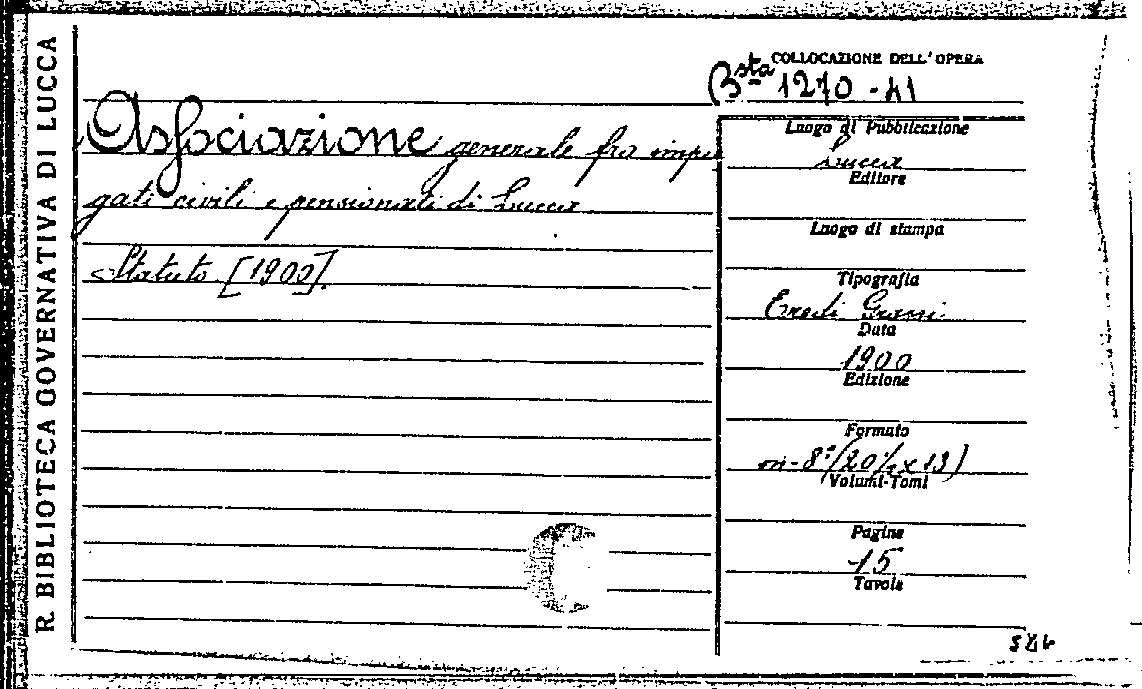 R. BIBLIOTECA GOVERNATIVA DI LUCCA
COLLOCAZIONE DELL'OPERA
Bsta 1270-41
Associazione generale fra impie
gati civili e pensionati di Lucca
Statuto [1900].
Luogo di Pubblicazione
Lucca
Editore
Luogo di stampa
Tipografia
Eredi Grassi
Data
1900
Edizione
Formato
in-8° (20½ x 13)
Volumi-Tomi
Pagine
15
Tavole